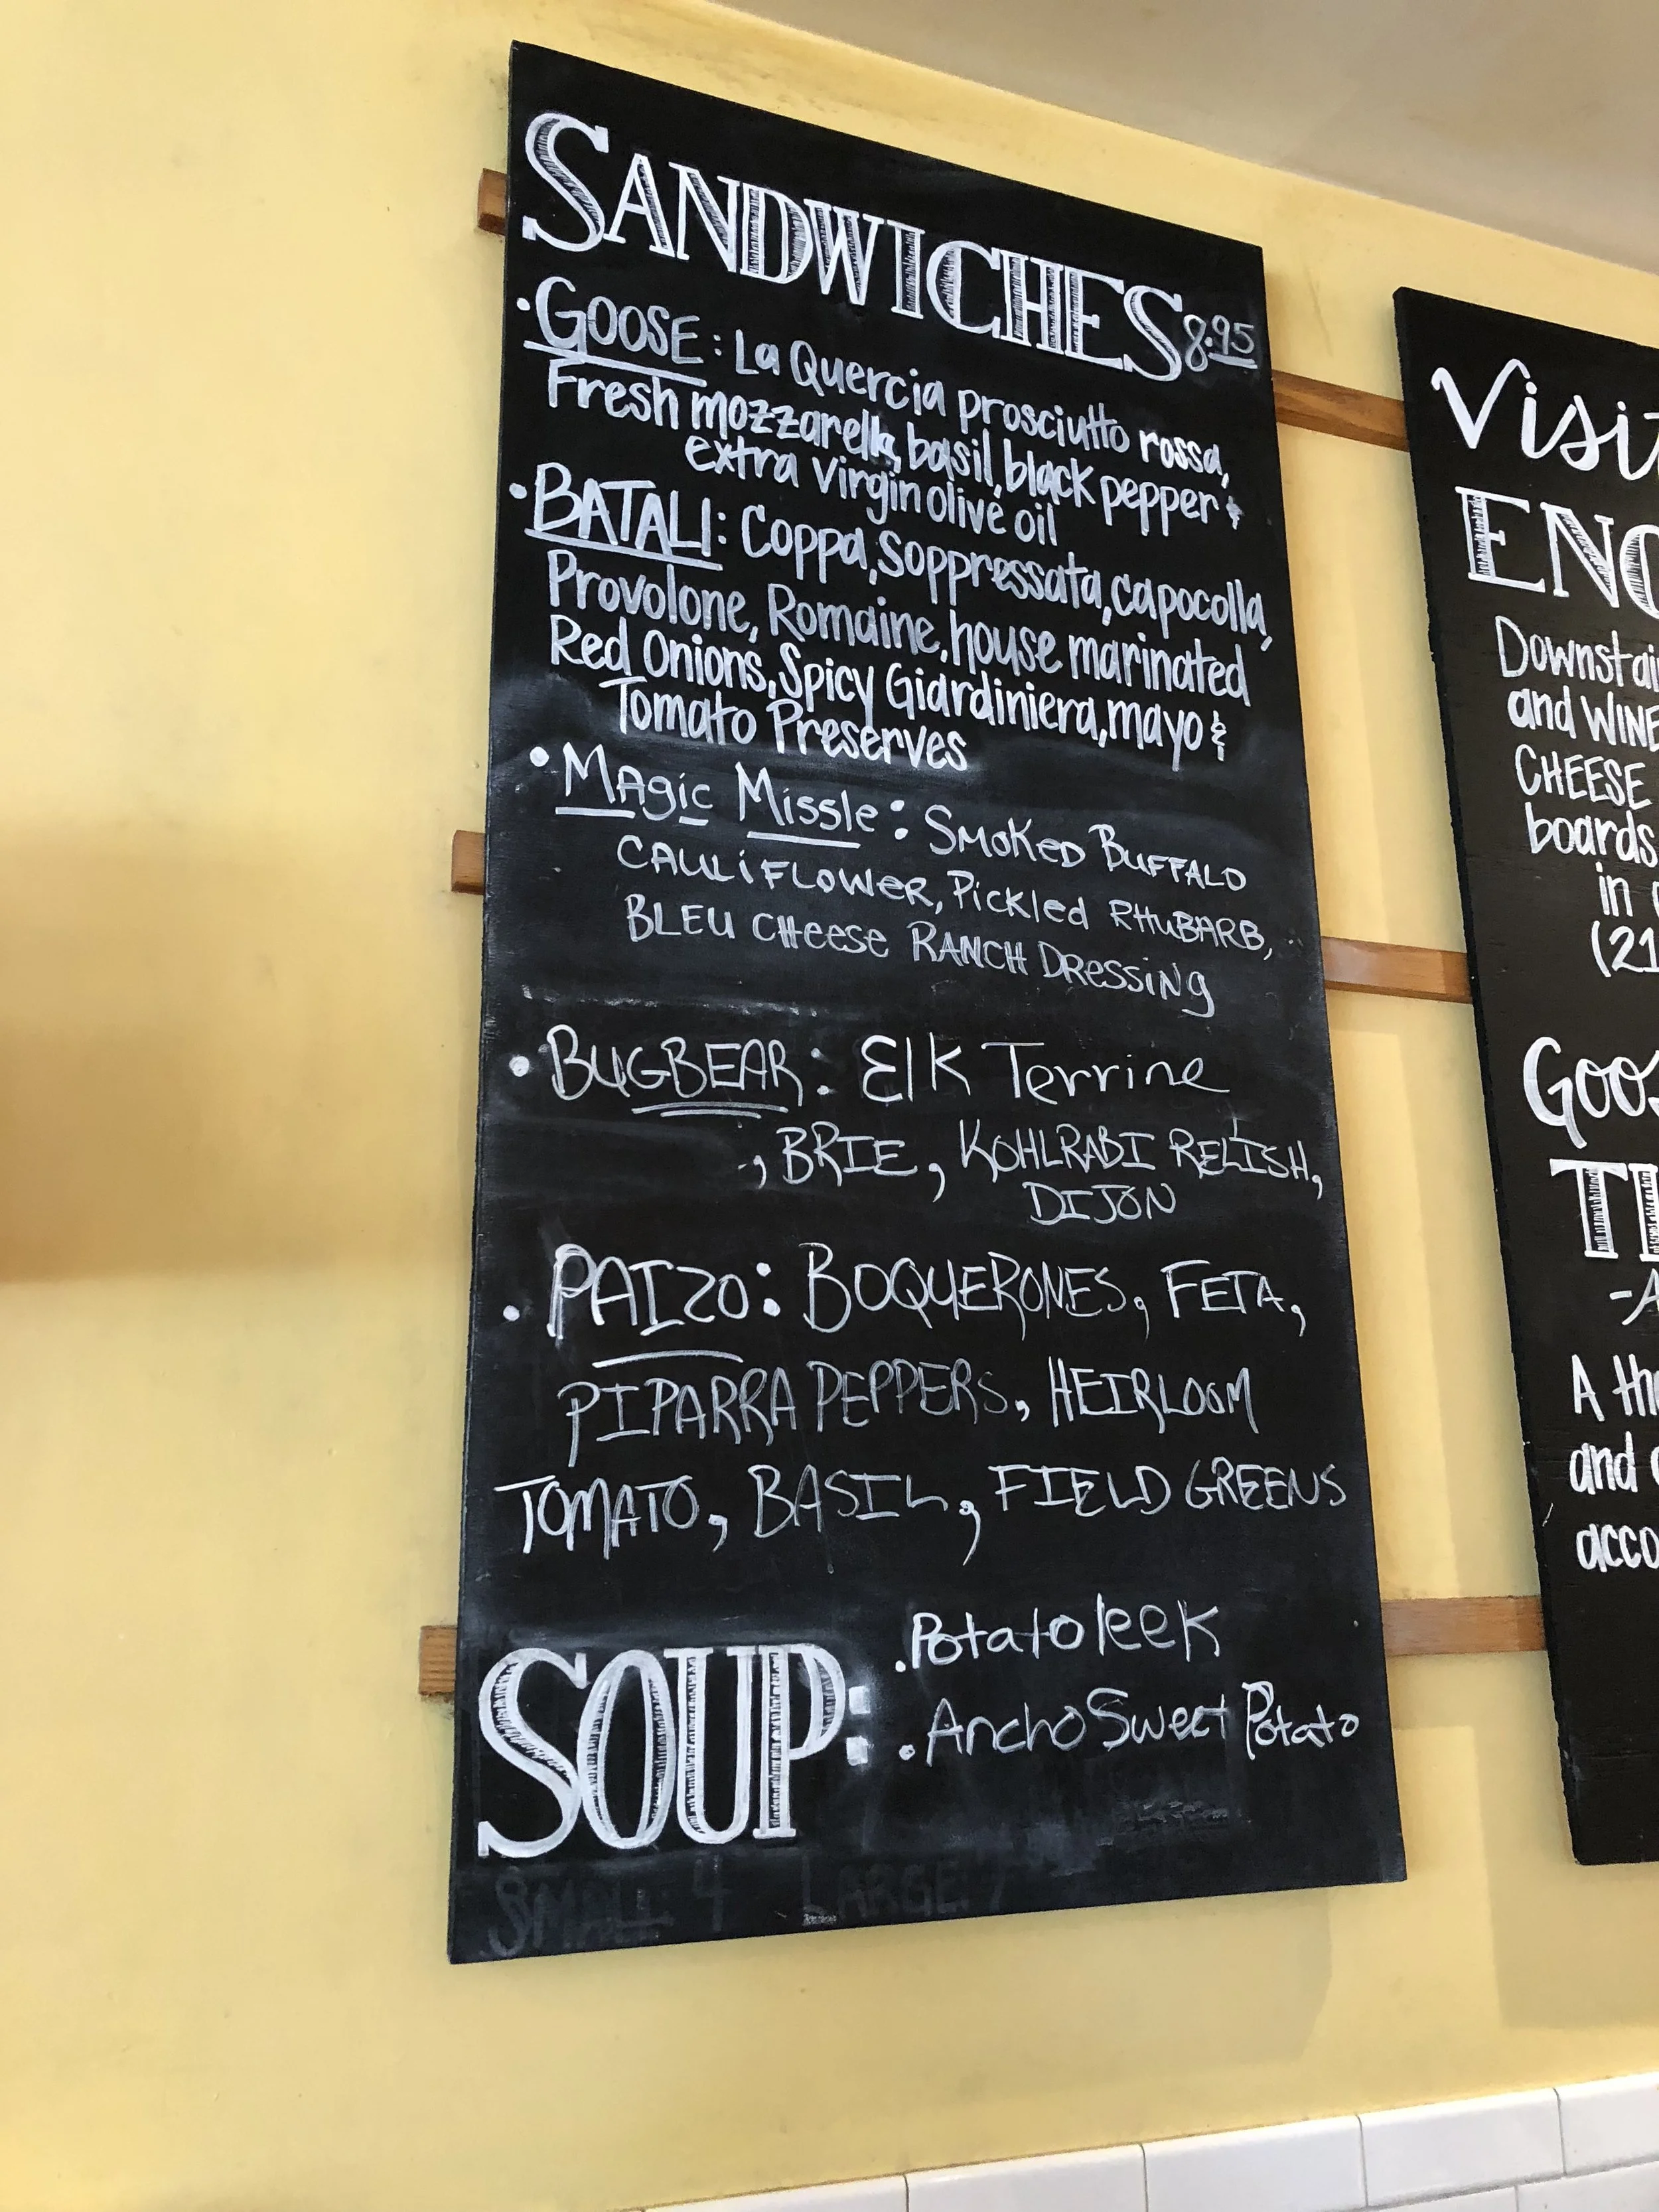 SANDWICHES 8.95
• GOOSE: La Quercia prosciutto rossa,
Fresh mozzarella, basil, black pepper &
extra virgin olive oil
• BATALI: Coppa, Soppressata, capocolla,
Provolone, Romaine, house marinated
Red Onions, Spicy Giardiniera, mayo &
Tomato Preserves
• MAgic Missle: SMOKED BUFFALO
CAULiFLOWER, Pickled RHUBARB,
BLEU CHeese RANCH DRessiNg
• BUGBEAR: Elk Terrine
, BRIE, KOHLRABI RELISH,
DIJON
• PAIZO: BOQUERONES, FETA,
PIPARRA PEPPERS, HEIRLOOM
TOMATO, BASIL, FIELD GREENS
SOUP:
• Potato leek
• Ancho Sweet Potato
SMALL 4 LARGE 7
Visit
Downstai
and WINE
CHEESE
boards
in
(21
A th
and
acco